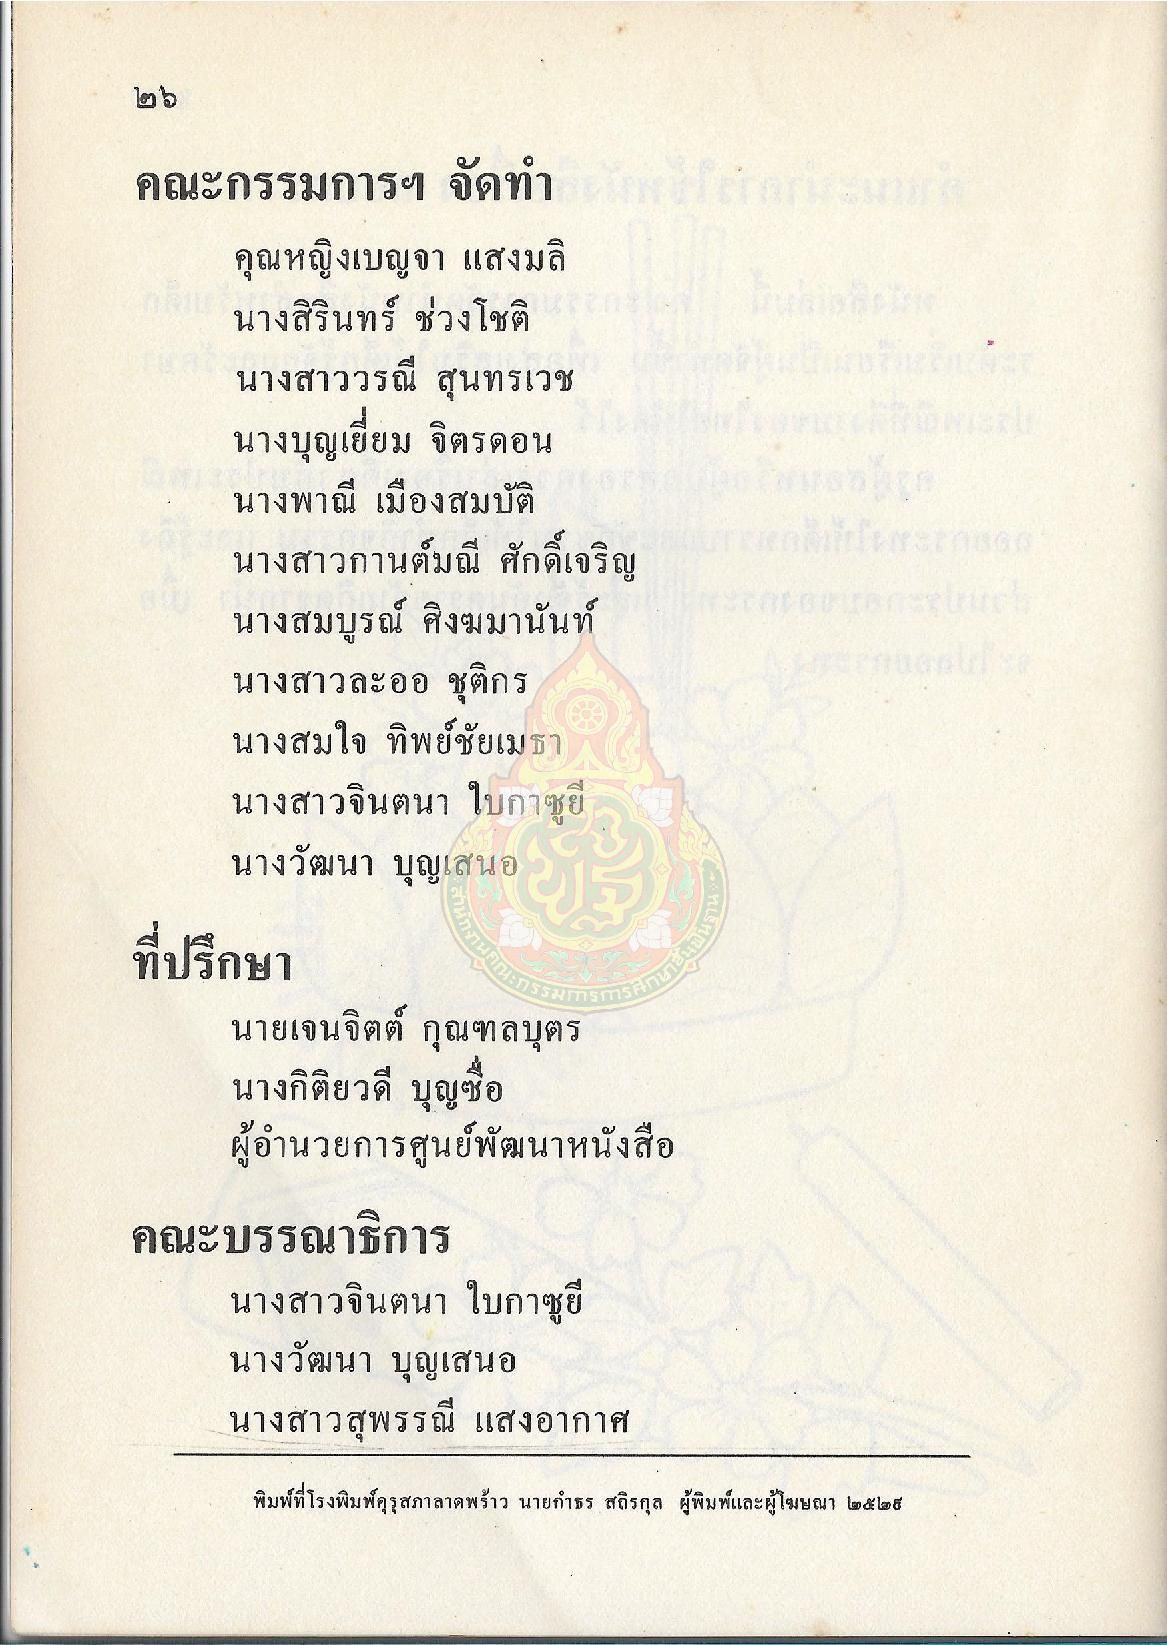 ๒๖
คณะกรรมการฯ จัดทำ
คุณหญิงเบญจา แสงมลิ
นางสิรินทร์ ช่วงโชติ
นางสาววรณี สุนทรเวช
นางบุญเยี่ยม จิตรดอน
นางพาณี เมืองสมบัติ
นางสาวกานต์มณี ศักดิ์เจริญ
นางสมบูรณ์ ศิงฆมานันท์
นางสาวละออ ชุติกร
นางสมใจ ทิพย์ชัยเมธา
นางสาวจินตนา ใบกาซูยี
นางวัฒนา บุญเสนอ
สำนักงานคณะกรรมการการศึกษาขั้นพื้นฐาน
ที่ปรึกษา
นายเจนจิตต์ กุณฑลบุตร
นางกิติยวดี บุญซื่อ
ผู้อำนวยการศูนย์พัฒนาหนังสือ
คณะบรรณาธิการ
นางสาวจินตนา ใบกาซูยี
นางวัฒนา บุญเสนอ
นางสาวสุพรรณี แสงอากาศ
พิมพ์ที่โรงพิมพ์คุรุสภาลาดพร้าว นายกำธร สถิรกุล ผู้พิมพ์และผู้โฆษณา ๒๕๒๙